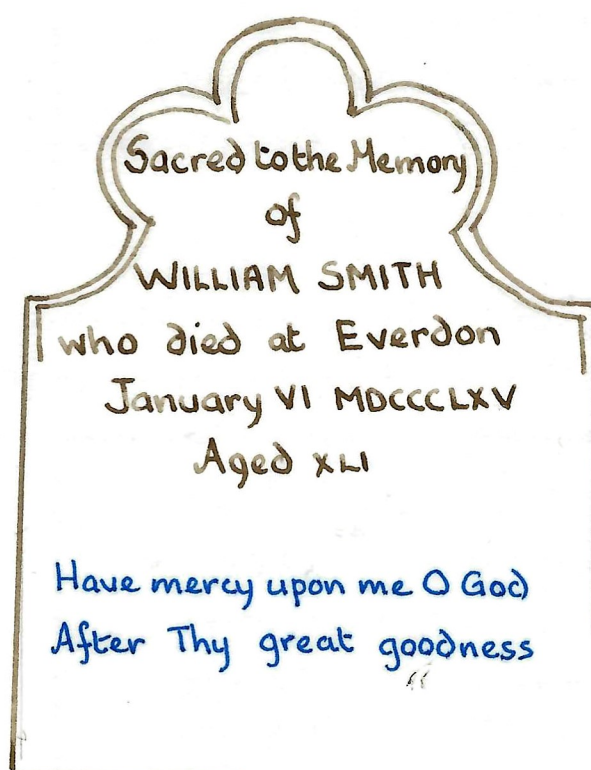 Sacred to the Memory
of
WILLIAM SMITH
who died at Everdon
January VI MDCCCLXV
Aged XLI
Have mercy upon me O God
After Thy great goodness